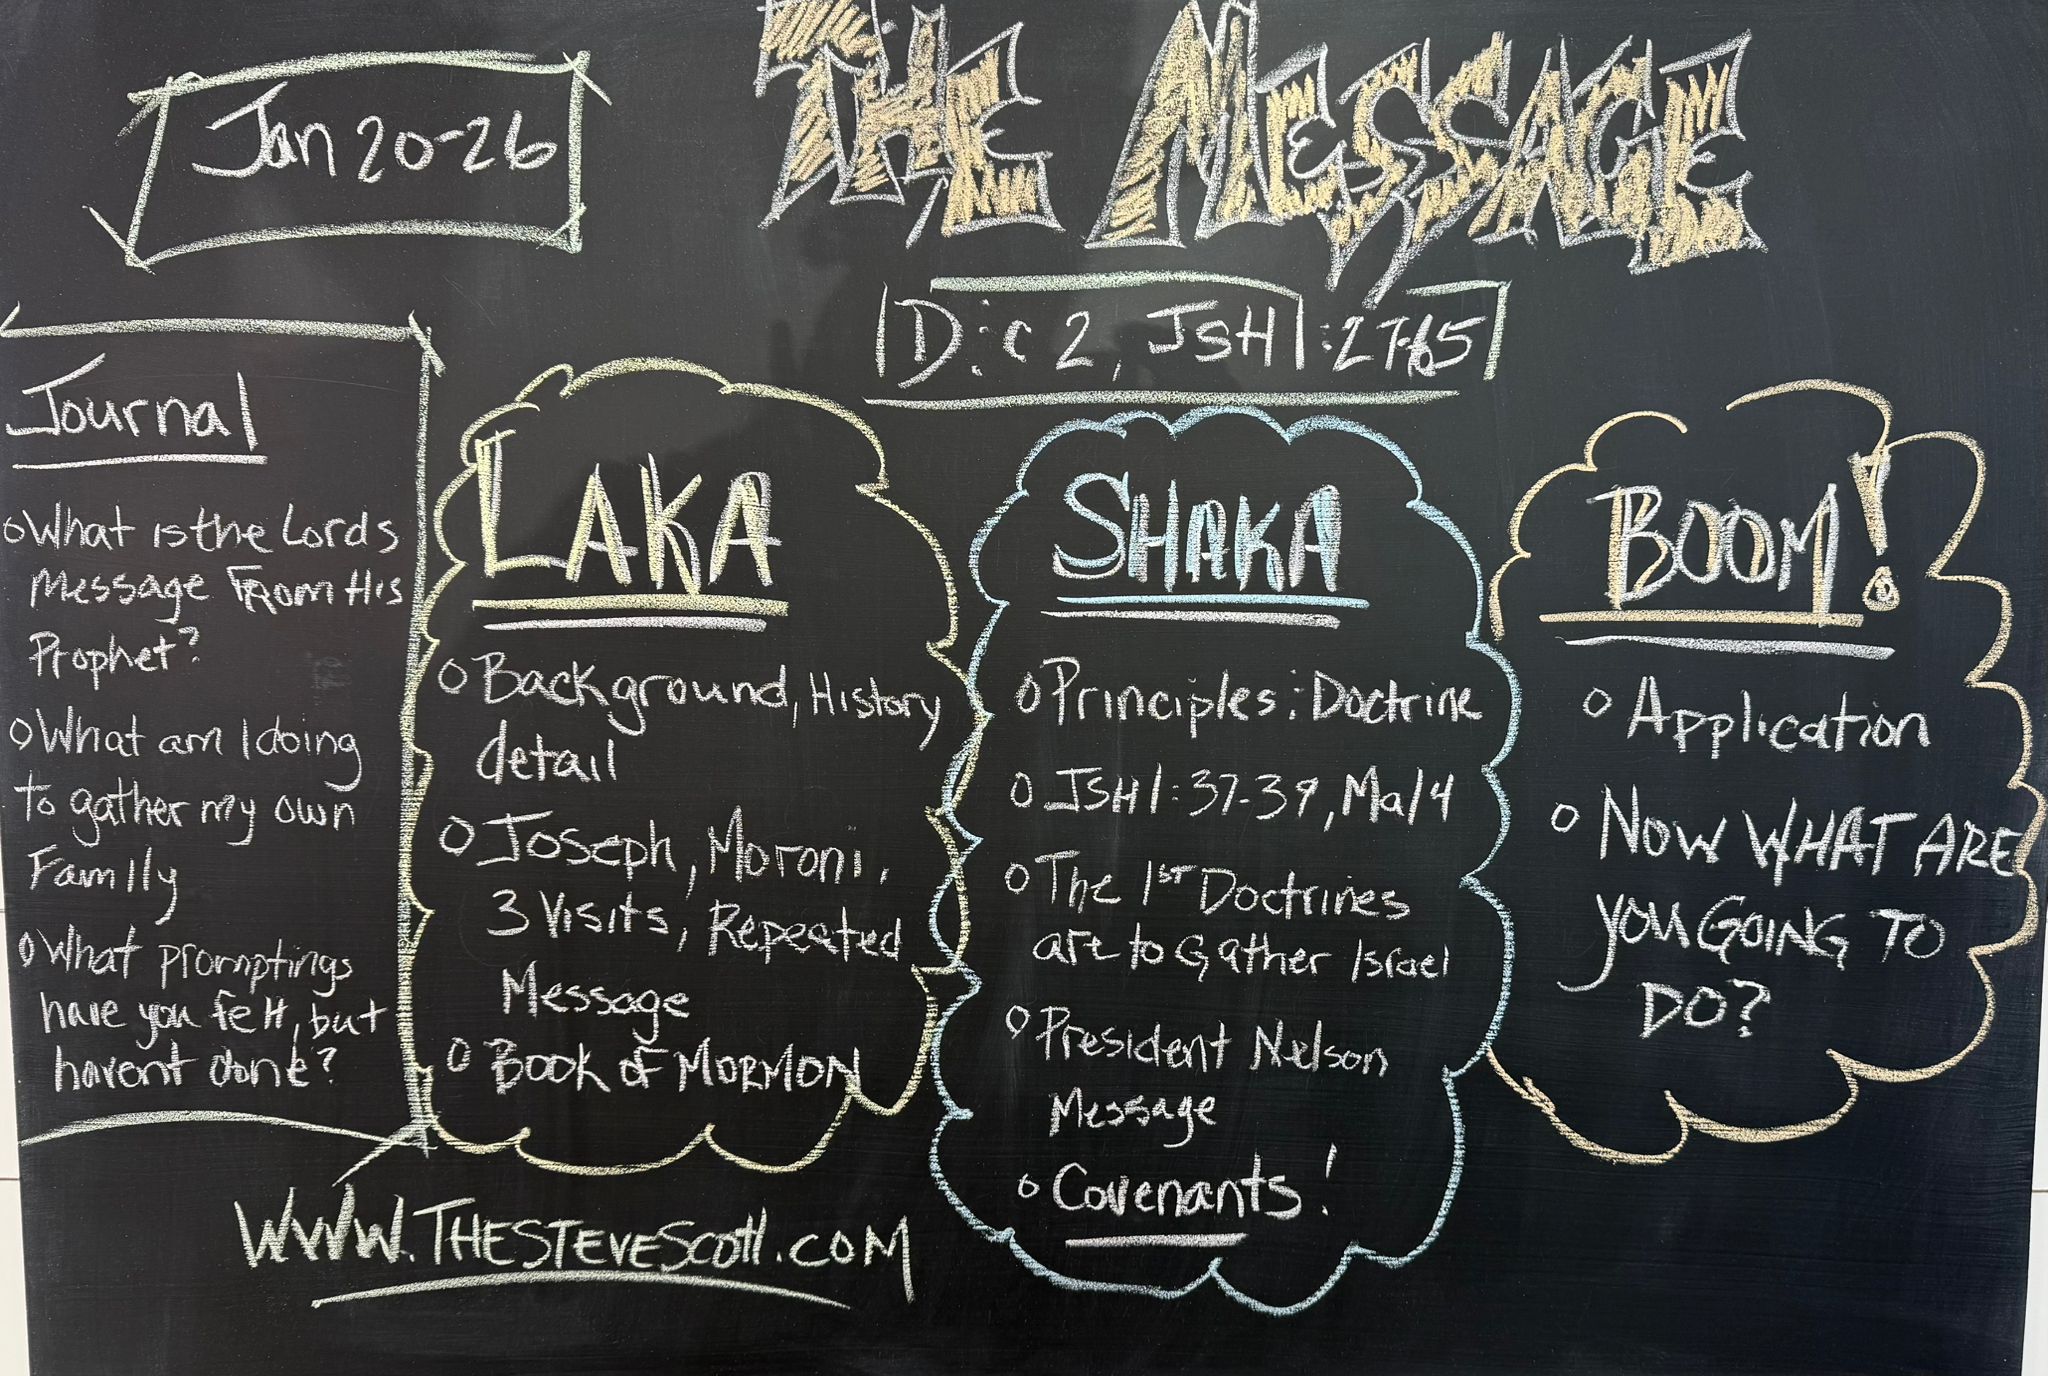 THE MESSAGE
Jan 20-26
D:C 2, JSH 1:27-65
Journal
o What is the Lords
Message From His
Prophet?
o What am I doing
to gather my own
Family
o What promptings
have you felt, but
havent done?
LAKA
o Background, History
detail
o Joseph, Moroni,
3 Visits, Repeated
Message
o Book of Mormon
SHAKA
o Principles: Doctrine
o JSH 1:37-39, Mal 4
o The 1st Doctrines
are to Gather Israel
o President Nelson
Message
o Covenants!
BOOM!
o Application
o NOW WHAT ARE
YOU GOING TO
DO?
WWW.THESTEVESCOTT.COM